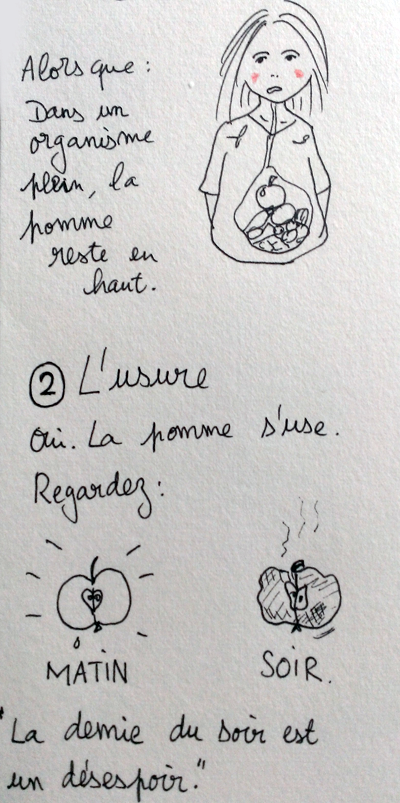 Alors que :
Dans un
organisme
plein, la
pomme
reste en
haut.
② L'usure
Oui. La pomme s'use.
Regardez :
MATIN
SOIR.
"La demie du soir est
un désespoir."